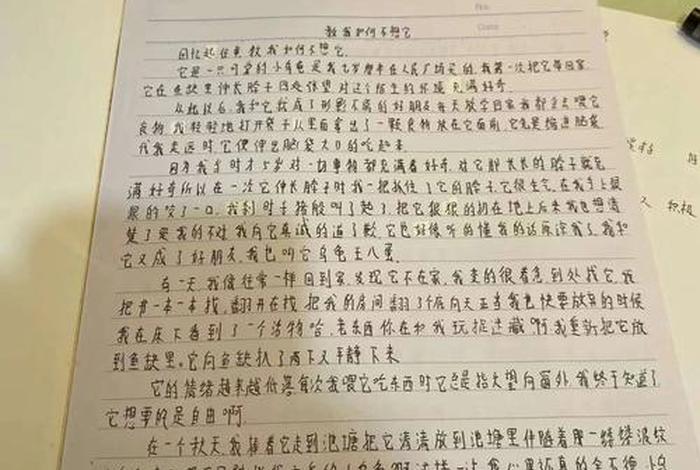 No.
Date
教我如何不想它
回忆起往事,教我如何不想它。
它是一只可爱的小乌龟是我七岁那年在人民广场买的,我第一次把它带回家,
它在鱼缸里伸长脖子四处张望,对这个陌生的环境充满好奇。
从此以后,我和它就成了形影不离的好朋友每天放学回家我都会去喂它
食物,我轻轻地打开袋子从里面拿出了一颗食物放在它面前,它先是缩进脑袋
我走远时它便伸出脑袋大口的吃起来。
因为我当时才5岁对一切事物都充满着好奇,对它那长长的脖子就充
满好奇所以在一次它伸长脖子时我一把抓住了它的脖子,它很生气,在我手上狠
狠的咬了一口,我叫了起了,把它狠狠的扔在地上后来我也想清
楚了是我的不对,我向它真诚的道了歉,它也好像听的懂我的话原谅我了,我和
它又成了好朋友,我也叫它乌龟王八蛋。
有一天,我像往常一样回到家,发现它不在家,我变的很着急到处找它,我
把书一本一本找,翻开在找,把我的房间翻了个底向天正当我也快要放弃的时候
我在床下看到了一个活物哈,老东西你在和我玩捉迷藏啊,我重新把它放
到鱼缸里,它向鱼缸扒了两下又平静下来
它的情绪越来越低落每次我喂它吃东西时它总是抬头望向窗外,我终于知道了
它想要的是自由啊。
在一个秋天,我抱着它走到池塘把它清清放到池塘里伴随着那一缕缕波纹